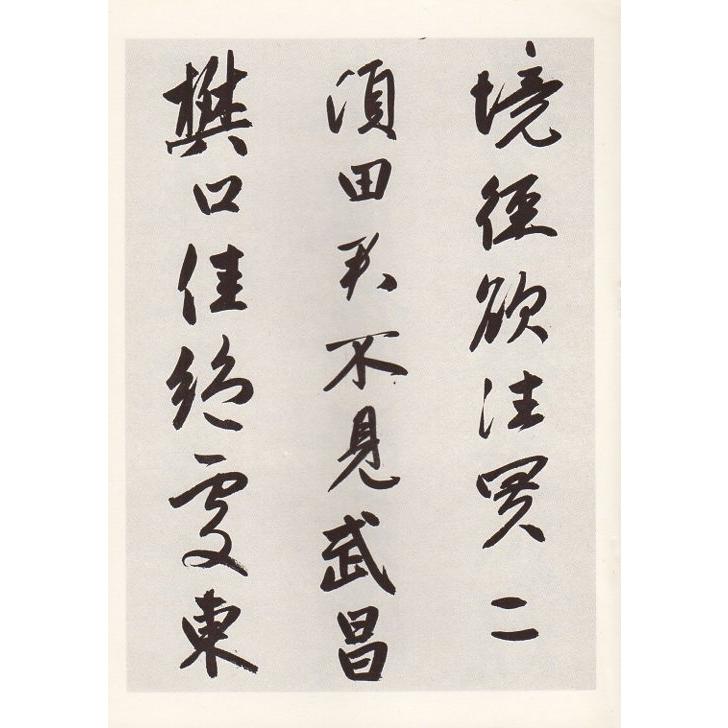 境徑欲往買二
頃田君不見武昌
樊口佳絕處東